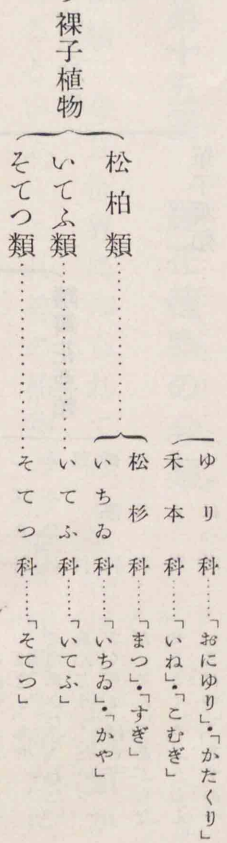 ゆり科……「おにゆり」・「かたくり」
禾本科……「いね」・「こむぎ」
裸子植物
松柏類
松杉科……「まつ」・「すぎ」
いちゐ科……「いちゐ」・「かや」
いてふ類……いてふ科……「いてふ」
そてつ類……そてつ科……「そてつ」